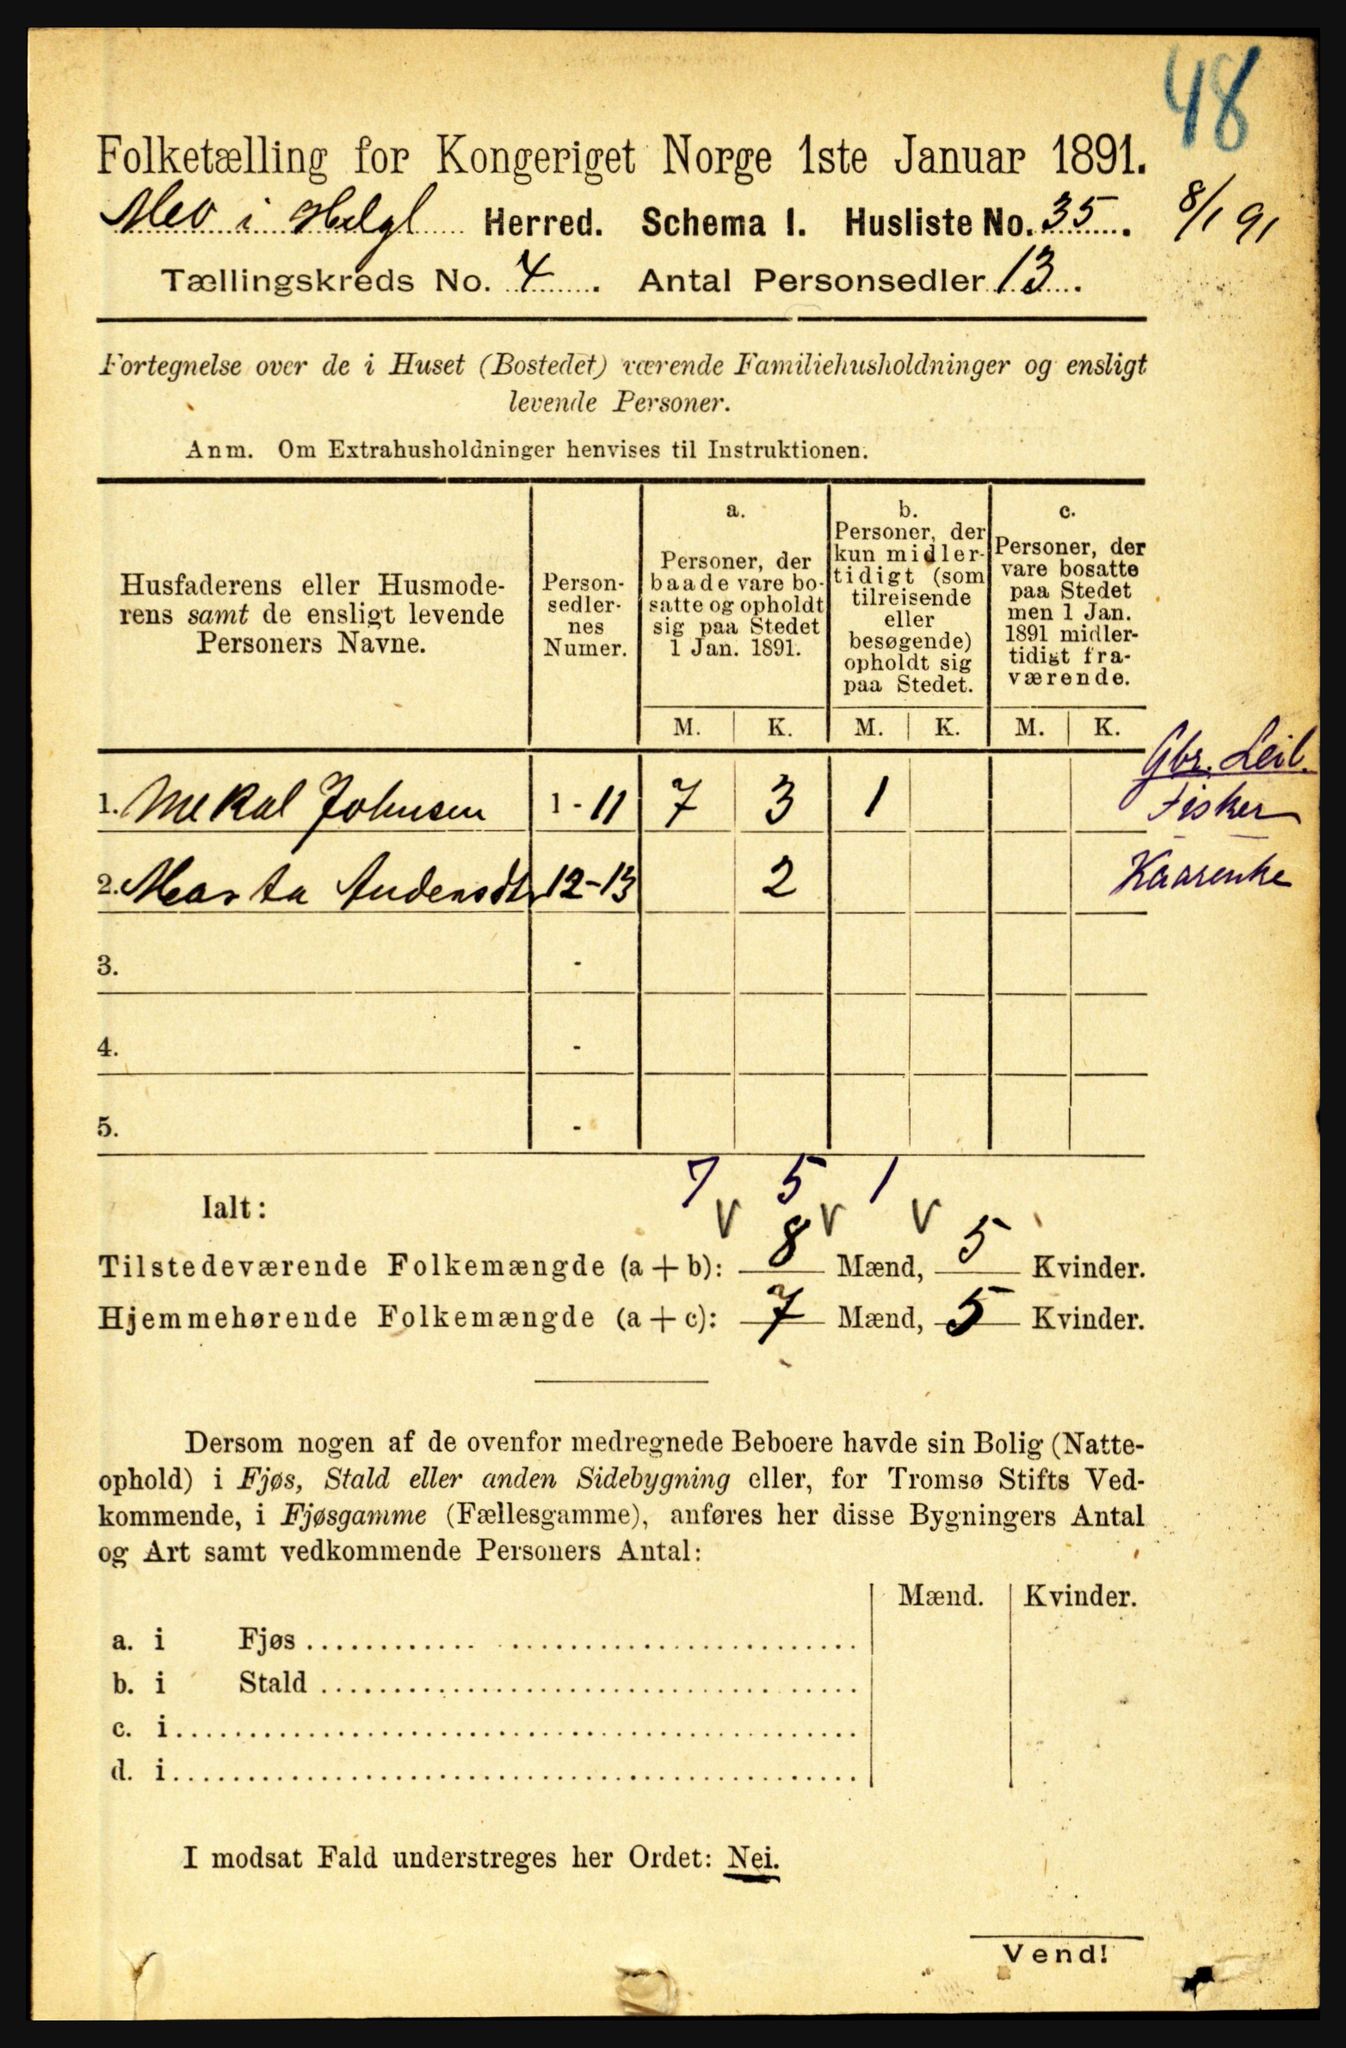 48
Folketælling for Kongeriget Norge 1ste Januar 1891.
Mev i Helgl Herred. Schema I. Husliste No. 35.
8/1 91
Tællingskreds No. 4. Antal Personsedler 13.
Fortegnelse over de i Huset (Bostedet) værende Familiehusholdninger og ensligt
levende Personer.
Anm. Om Extrahusholdninger henvises til Instruktionen.
Husfaderens eller Husmode-
rens samt de ensligt levende
Personers Navne.
Person-
sedler-
nes
Numer.
a.
Personer, der
baade vare bo-
satte og opholdt
sig paa Stedet
1 Jan. 1891.
b.
Personer, der
kun midler-
tidigt (som
tilreisende
eller
besøgende)
opholdt sig
paa Stedet.
c.
Personer, der
vare bosatte
paa Stedet
men 1 Jan.
1891 midler-
tidigt fra-
værende.
M. K. M. K. M. K.
1. Mekal Johnsen 1 - 11 7 3 1
Gbr. Leil.
Fisker
2. Marta Andersdt 12-13 2
Kaarenke
3. -
4. -
5. -
Ialt: 7 5 1
V V V
Tilstedeværende Folkemængde (a + b): 8 Mænd, 5 Kvinder.
Hjemmehørende Folkemængde (a + c): 7 Mænd, 5 Kvinder.
Dersom nogen af de ovenfor medregnede Beboere havde sin Bolig (Natte-
ophold) i Fjøs, Stald eller anden Sidebygning eller, for Tromsø Stifts Ved-
kommende, i Fjøsgamme (Fællesgamme), anføres her disse Bygningers Antal
og Art samt vedkommende Personers Antal:
Mænd. Kvinder.
a. i Fjøs
b. i Stald
c. i
d. i
I modsat Fald understreges her Ordet: Nei.
Vend!